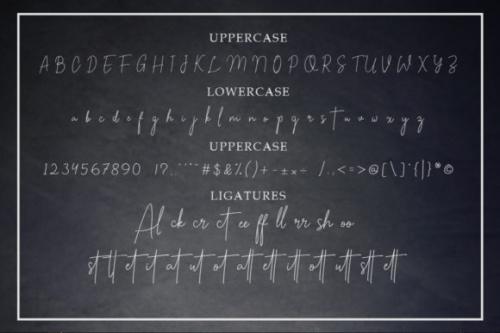 UPPERCASE
A B C D E F G H I J K L M N O P Q R S T U V W X Y Z
LOWERCASE
a b c d e f g h i j k l m n o p q r s t u v w x y z
UPPERCASE
1234567890
LIGATURES
Al ck cr ct ee ff ll rr sh oo
st tl et it at ut ot att ett itt ott utt stt ett